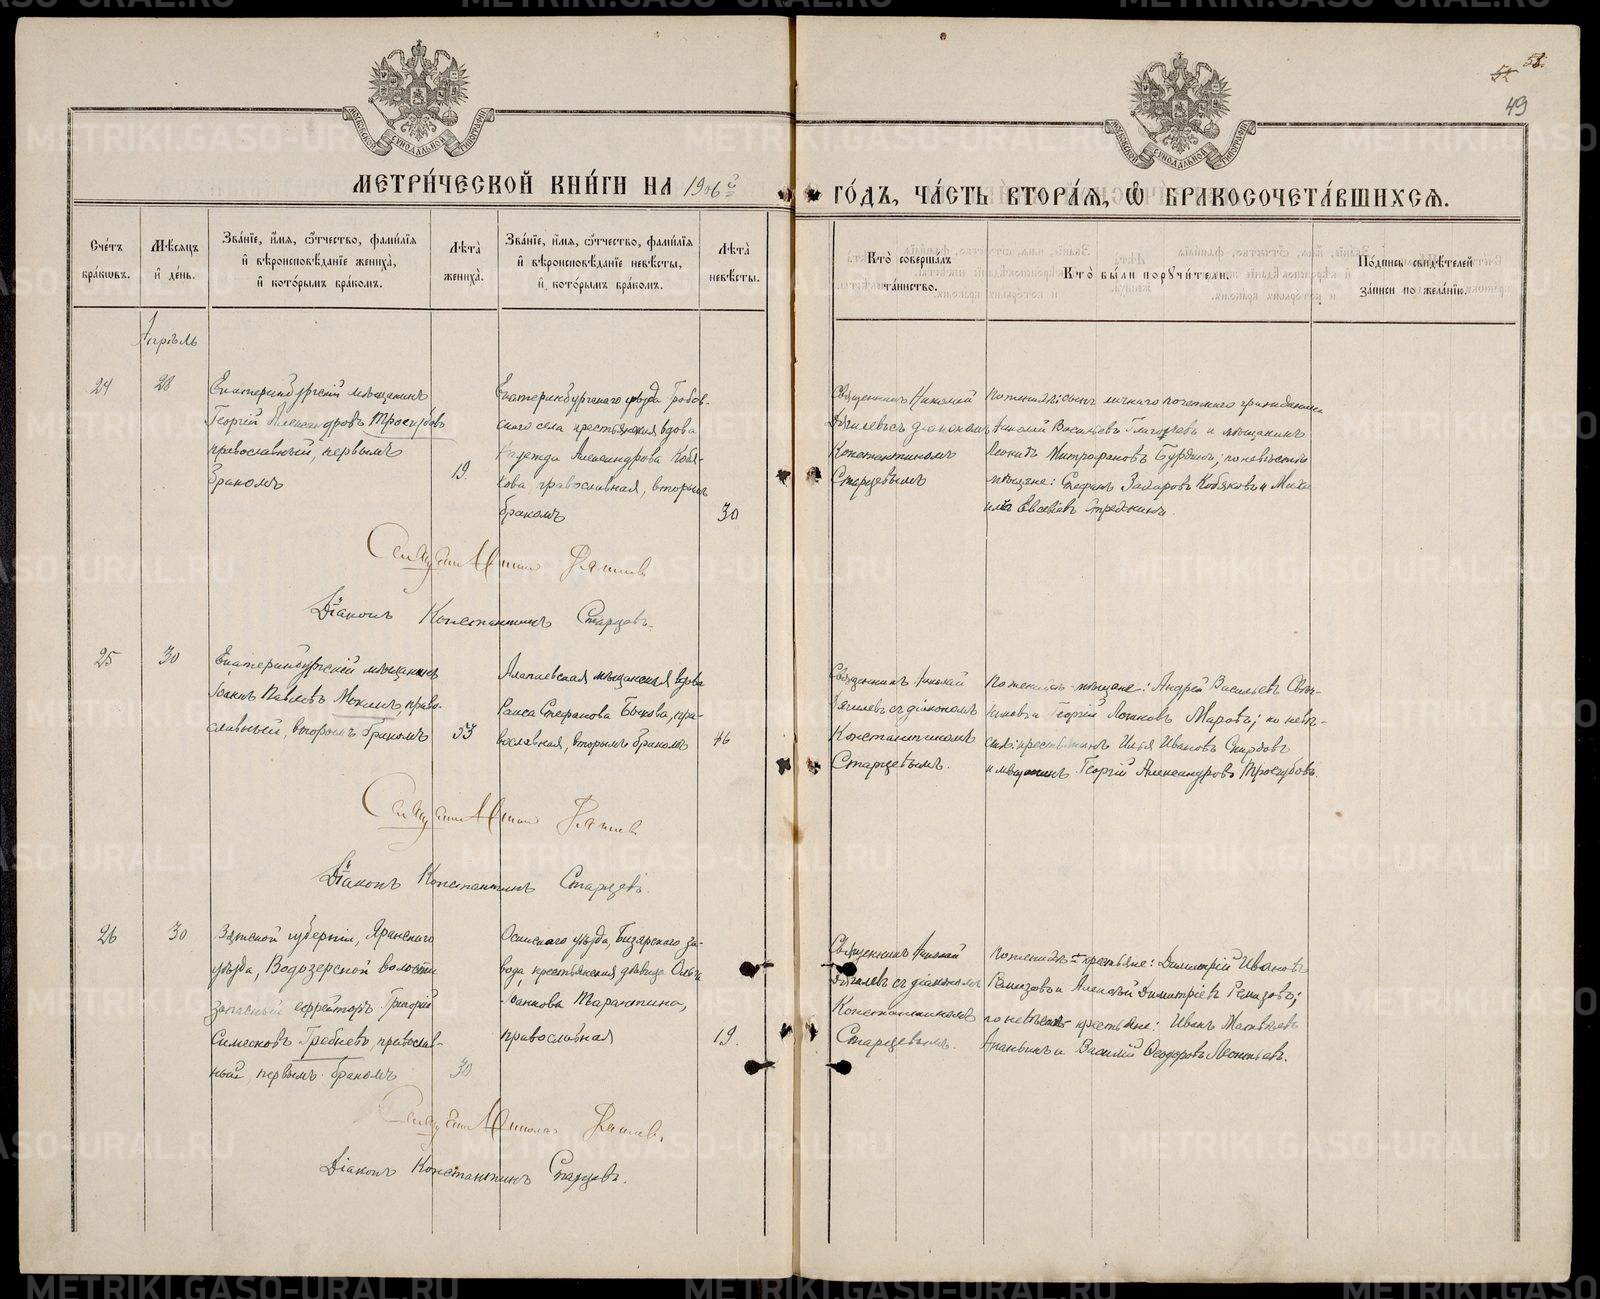 МЕТРИ́ЧЕСКОЙ КНИ́ГИ НА 1906й
ГО́ДЪ, ЧА́СТЬ ВТОРА́Я, Ѡ БРАКОСОЧЕТА́ВШИХСЯ.
58.
49
МОСКОВСКОЙ СѴНОДАЛЬНОЙ ТИПОГРАФІИ
МОСКОВСКОЙ СѴНОДАЛЬНОЙ ТИПОГРАФІИ
Сче́тъ бра́кωвъ.
Мѣ́сяцъ и҆ де́нь.
Зва́нїе, и҆́мя, ѻ҆́тчество, фами́лїя и҆ вѣроисповѣ́данїе жениха̀, и҆ кото́рымъ бра́комъ.
Лѣ́та жениха̀.
Зва́нїе, и҆́мя, ѻ҆́тчество, фами́лїя и҆ вѣроисповѣ́данїе невѣ́сты, и҆ кото́рымъ бра́комъ.
Лѣ́та невѣ́сты.
Кто̀ соверша́лъ та́инство.
Кто̀ бы́ли порꙋчи́тели.
По́дпись свидѣ́телей за́писи по жела́нїю.
Апрѣль
24
28
Екатеринбургскій мѣщанинъ
Георгій Александровъ Троскубовъ
православный, первымъ
бракомъ
19.
Екатеринбургскаго уѣзда Гробов-
скаго села крестьянская вдова
Надежда Александрова Кобя-
кова православная, вторымъ
бракомъ
30
Священникъ Николай
Дягилевъ съ діакономъ
Константиномъ
Старцевымъ
По женихѣ: сынъ личнаго почетнаго гражданина
Николай Васильевъ Григорьевъ и мѣщанинъ
Леонидъ Митрофановъ Бурдинъ; по невѣстѣ
мѣщане: Стефанъ Захаровъ Кобяковъ и Миха-
илъ Евсевіевъ Стрежнинъ.
Священникъ Николай Дягилев
Діаконъ Константинъ Старцевъ.
25
30
Екатеринбургскій мѣщанинъ
Іоаннъ Павловъ Мокинъ, право-
славный, вторымъ бракомъ
53
Алапаевская мѣщанская вдова
Раиса Стефанова Быкова, пра-
вославная, вторымъ бракомъ
46
Священникъ Николай
Дягилевъ съ діакономъ
Константиномъ
Старцевымъ.
По женихѣ мѣщане: Андрей Васильевъ
и Георгій Маровъ; по невѣ-
стѣ: крестьянинъ Илья Ивановъ
и мѣщанинъ Георгій Александровъ Троскубовъ.
Священникъ Николай Дягилев
Діаконъ Константинъ Старцевъ.
26
30
Вятской губерніи, Яранскаго
уѣзда, Водозерской волости
запасный ефрейторъ Григорій
Симеоновъ Гребневъ, православ-
ный, первымъ бракомъ
30
Осинскаго уѣзда, Бизярскаго за-
вода, крестьянская дѣвица Ольга
Іоаннова Тарантина,
православная
19.
Священникъ Николай
Дягилевъ съ діакономъ
Константиномъ
Старцевымъ.
По женихѣ крестьяне: Димитрій Ивановъ
Ремизовъ и Алексѣй Димитріевъ Ремизовъ;
по невѣстѣ крестьяне: Иванъ Матвѣевъ
Ананьинъ и Василій Ѳеодоровъ Леонтьевъ.
Священникъ Николай Дягилев.
Діаконъ Константинъ Старцевъ.
METRIKI.GASO-URAL.RU